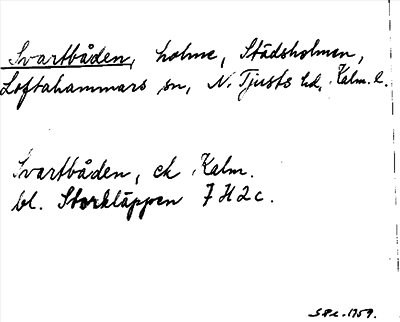 Svartbåden, holme, Städsholmen,
Loftahammars sn, N. Tjusts hd, Kalm. l.
Svartbåden, ek Kalm.
bl. Storkläppen 7 H 2 c.
1759.